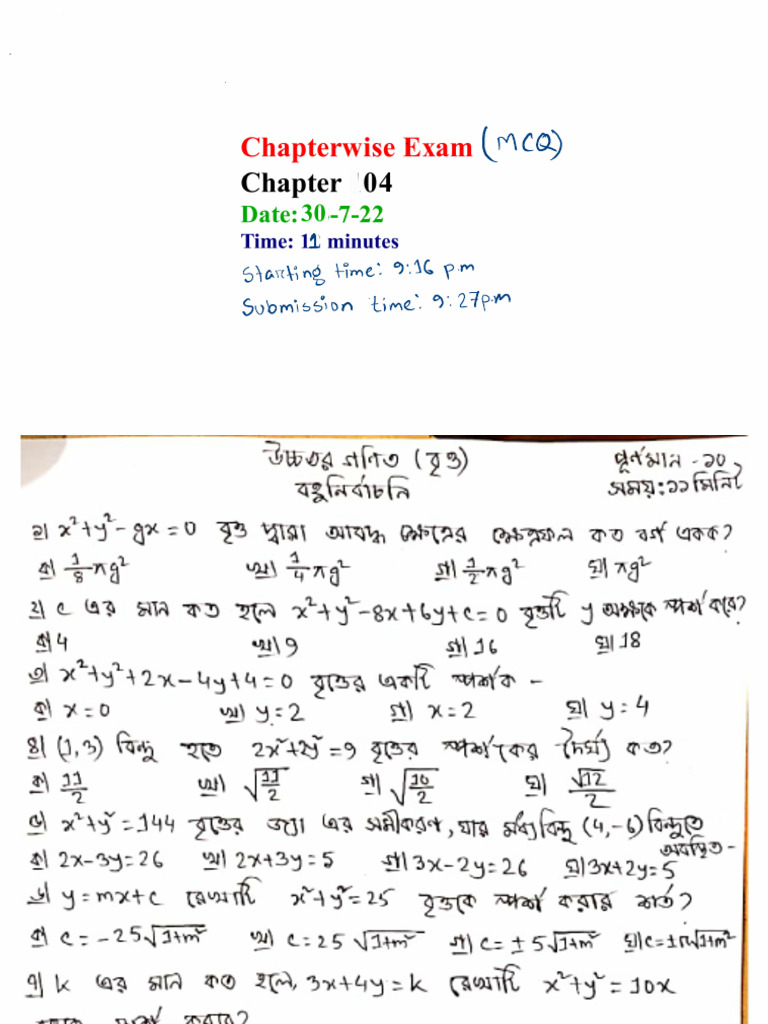 Chapterwise Exam (MCQ)
Chapter 04
Date: 30-7-22
Time: 11 minutes
Starting time: 9:16 p.m
Submission time: 9:27p.m
উচ্চতর গণিত (বৃত্ত) পূর্ণমান - ১০
বহুনির্বাচনি সময়: ১১ মিনিট
১| x²+y²-gx=0 বৃত্ত দ্বারা আবদ্ধ ক্ষেত্রের ক্ষেত্রফল কত বর্গ একক?
ক| 1/8 πg² খ| 1/4 πg² গ| 1/2 πg² ঘ| πg²
২| c এর মান কত হলে x²+y²-8x+6y+c=0 বৃত্তটি y অক্ষকে স্পর্শ করে?
ক| 4 খ| 9 গ| 16 ঘ| 18
৩| x²+y²+2x-4y+4=0 বৃত্তের একটি স্পর্শক -
ক| x=0 খ| y=2 গ| x=2 ঘ| y=4
৪| (1,3) বিন্দু হতে 2x²+2y²=9 বৃত্তের স্পর্শকের দৈর্ঘ্য কত?
ক| 11/2 খ| √11/2 গ| √10/2 ঘ| √12/2
৫| x²+y²=144 বৃত্তের জ্যা এর সমীকরণ, যার মধ্যবিন্দু (4,-6) বিন্দুতে
অবস্থিত -
ক| 2x-3y=26 খ| 2x+3y=5 গ| 3x-2y=26 ঘ| 3x+2y=5
৬| y=mx+c রেখাটি x²+y²=25 বৃত্তকে স্পর্শ করার শর্ত?
ক| c=-25√1+m² খ| c=25√1+m² গ| c=±5√1+m² ঘ| √1+m²
৭| k এর মান কত হলে, 3x+4y=k রেখাটি x²+y²=10x
স্পর্শ করবে?